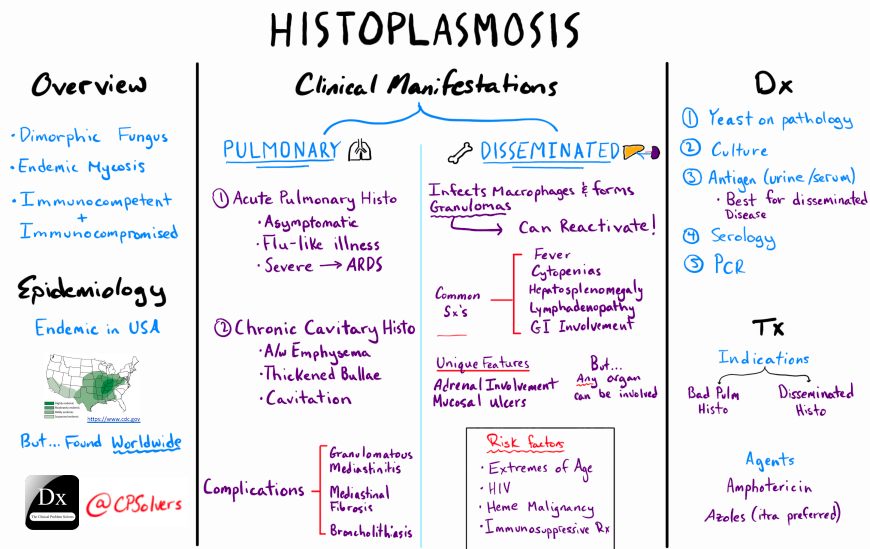 HISTOPLASMOSIS
Overview
• Dimorphic Fungus
• Endemic Mycosis
• Immunocompetent
+
Immunocompromised
Epidemiology
Endemic in USA
https://www.cdc.gov
But... Found Worldwide
Dx
The Clinical Problem Solvers
@CPSolvers
Clinical Manifestations
PULMONARY
① Acute Pulmonary Histo
• Asymptomatic
• Flu-like illness
• Severe → ARDS
② Chronic Cavitary Histo
• A/w Emphysema
• Thickened Bullae
• Cavitation
Complications
Granulomatous
Mediastinitis
Mediastinal
Fibrosis
Broncholithiasis
DISSEMINATED
Infects Macrophages & forms
Granulomas
Can Reactivate!
Common
Sx's
Fever
Cytopenias
Hepatosplenomegaly
Lymphadenopathy
GI Involvement
Unique Features
Adrenal Involvement
Mucosal Ulcers
But...
Any organ
can be involved
Risk factors
• Extremes of Age
• HIV
• Heme Malignancy
• Immunosuppressive Rx
Dx
① Yeast on pathology
② Culture
③ Antigen (urine/serum)
• Best for disseminated
Disease
④ Serology
⑤ PCR
Tx
Indications
Bad Pulm
Histo
Disseminated
Histo
Agents
Amphotericin
Azoles (itra preferred)